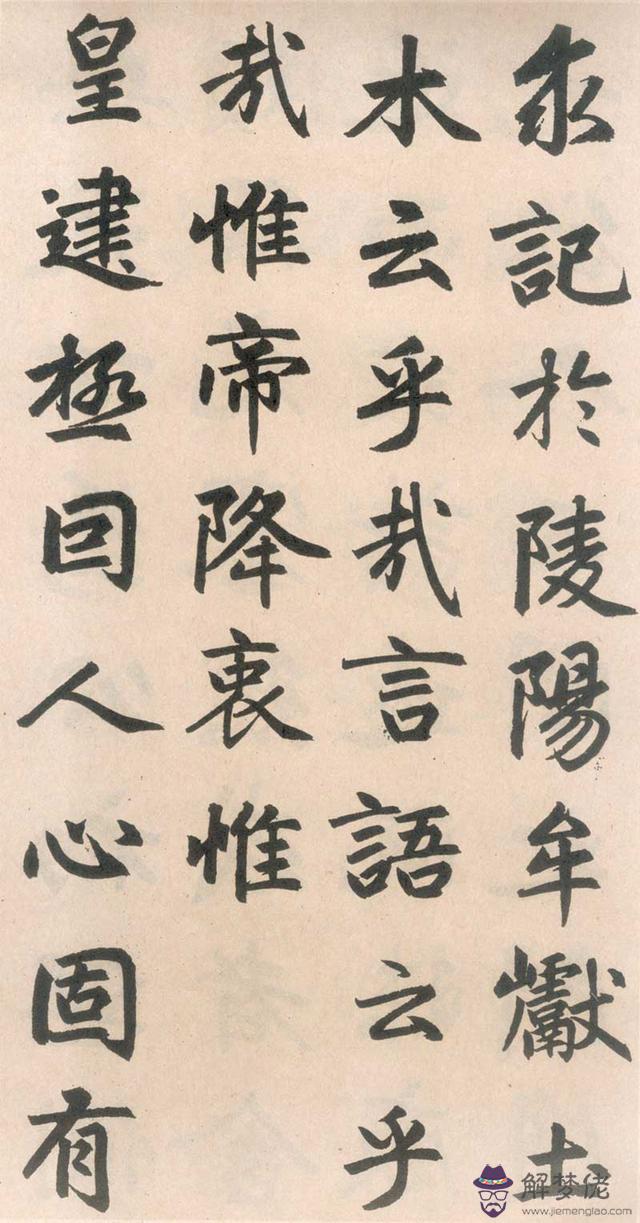 求記於陵陽牟巘土
木云乎哉言語云乎
哉惟帝降衷惟
皇建極因人心固有
解梦佬
www.jiemenglao.com